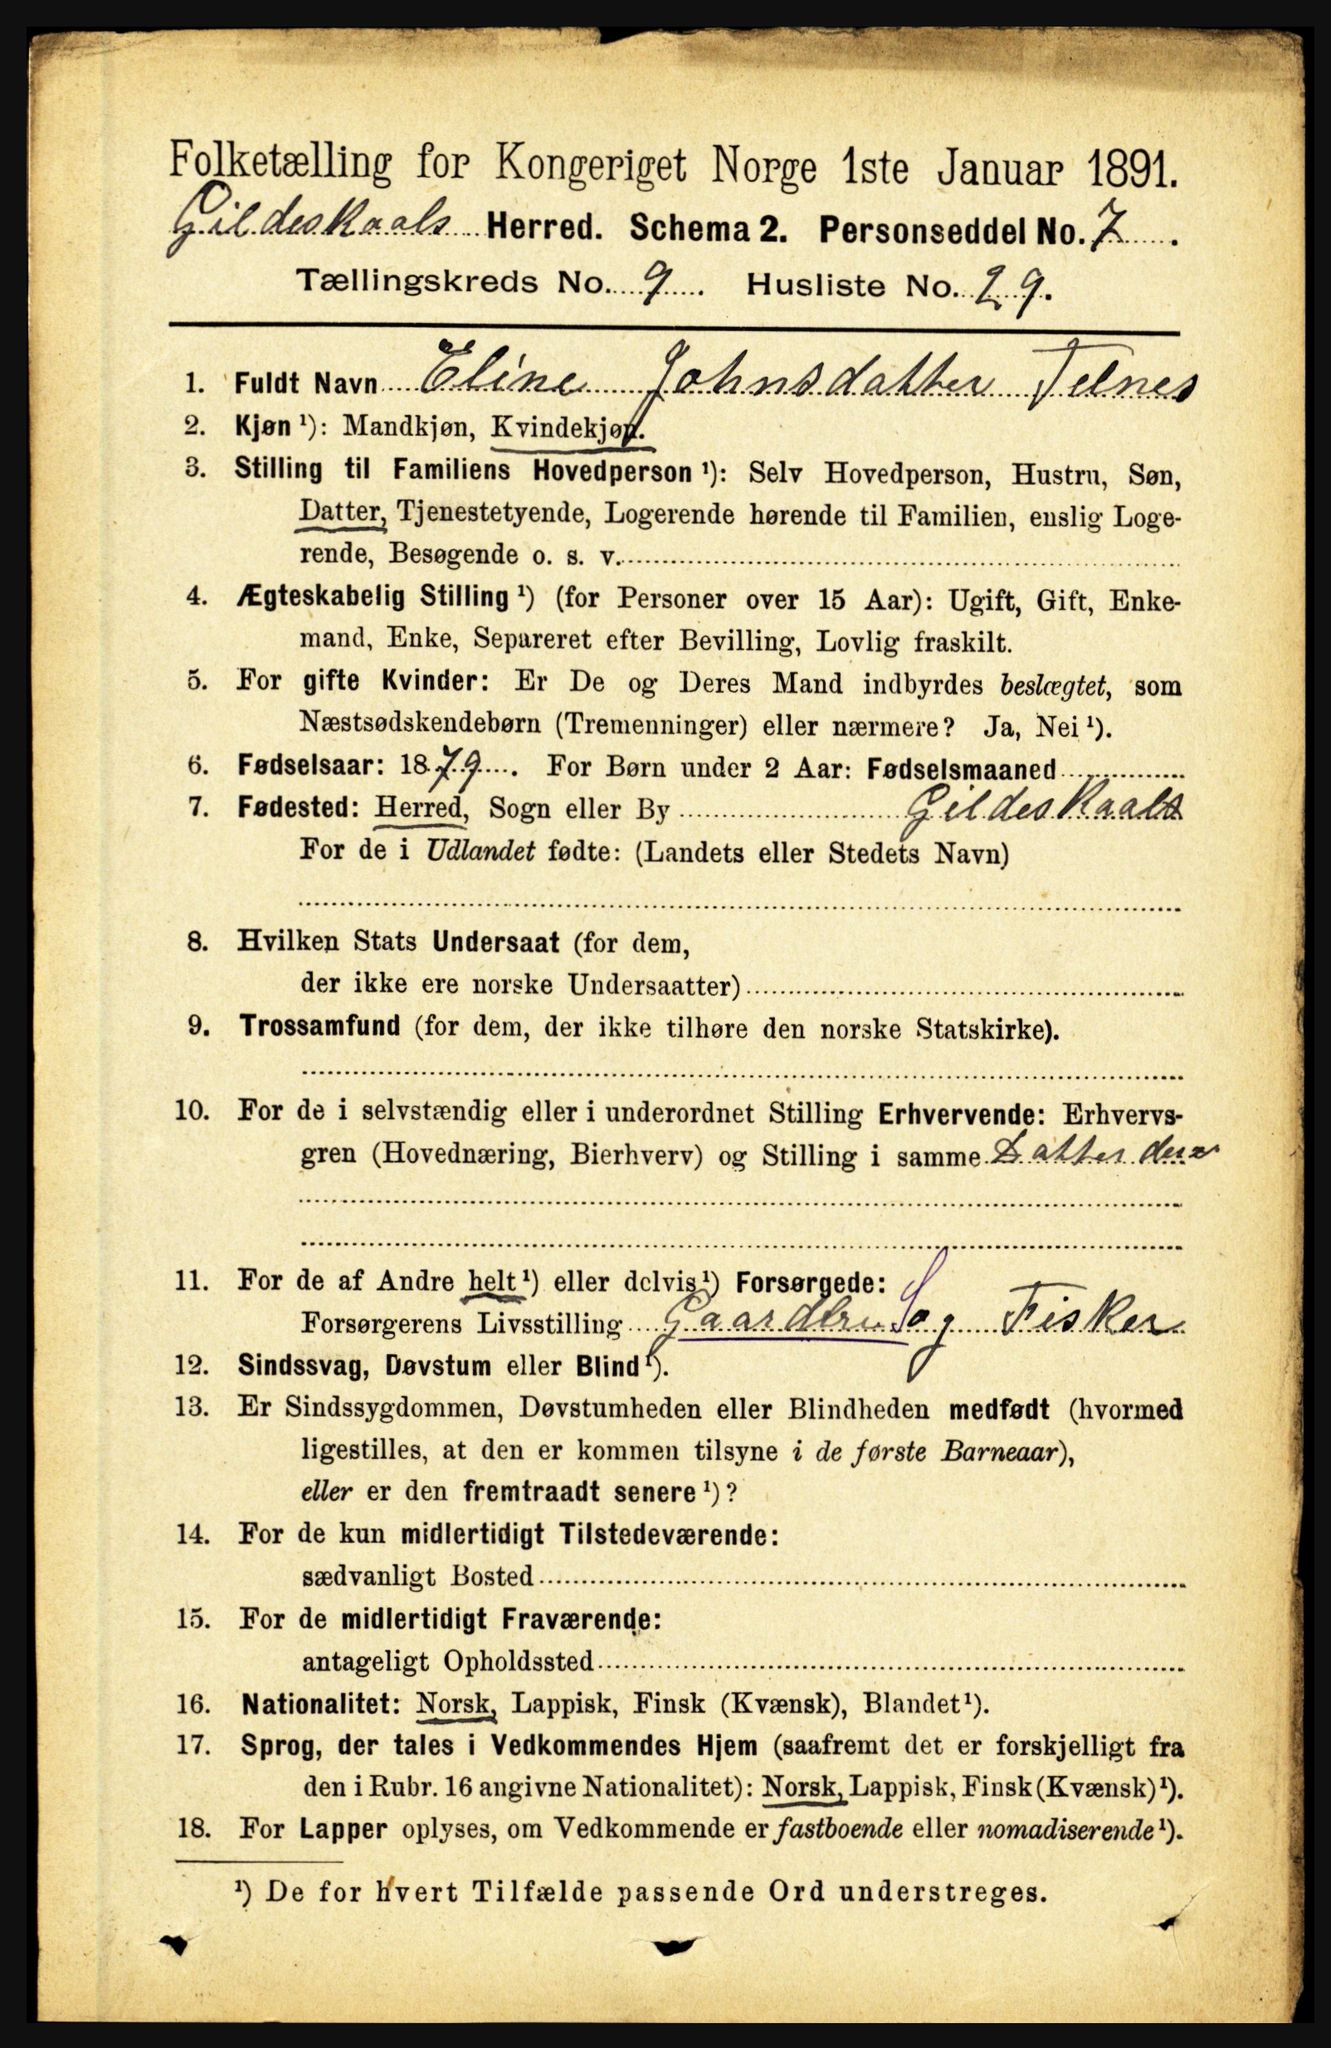 Folketælling for Kongeriget Norge 1ste Januar 1891.
Gildeskaals Herred. Schema 2. Personseddel No. 7.
Tællingskreds No. 9. Husliste No. 29.
1. Fuldt Navn Eline Johnsdatter Telnes
2. Kjøn ¹): Mandkjøn, Kvindekjøn.
3. Stilling til Familiens Hovedperson ¹): Selv Hovedperson, Hustru, Søn,
Datter, Tjenestetyende, Logerende hørende til Familien, enslig Loge-
rende, Besøgende o. s. v.
4. Ægteskabelig Stilling ¹) (for Personer over 15 Aar): Ugift, Gift, Enke-
mand, Enke, Separeret efter Bevilling, Lovlig fraskilt.
5. For gifte Kvinder: Er De og Deres Mand indbyrdes beslægtet, som
Næstsødskendebørn (Tremenninger) eller nærmere? Ja, Nei ¹).
6. Fødselsaar: 1879. For Børn under 2 Aar: Fødselsmaaned
7. Fødested: Herred, Sogn eller By Gildeskaals
For de i Udlandet fødte: (Landets eller Stedets Navn)
8. Hvilken Stats Undersaat (for dem,
der ikke ere norske Undersaatter)
9. Trossamfund (for dem, der ikke tilhøre den norske Statskirke).
10. For de i selvstændig eller i underordnet Stilling Erhvervende: Erhvervs-
gren (Hovednæring, Bierhverv) og Stilling i samme Datter
11. For de af Andre helt ¹) eller delvis ¹) Forsørgede:
Forsørgerens Livsstilling og Fisker
12. Sindssvag, Døvstum eller Blind ¹).
13. Er Sindssygdommen, Døvstumheden eller Blindheden medfødt (hvormed
ligestilles, at den er kommen tilsyne i de første Barneaar),
eller er den fremtraadt senere ¹)?
14. For de kun midlertidigt Tilstedeværende:
sædvanligt Bosted
15. For de midlertidigt Fraværende:
antageligt Opholdssted
16. Nationalitet: Norsk, Lappisk, Finsk (Kvænsk), Blandet ¹).
17. Sprog, der tales i Vedkommendes Hjem (saafremt det er forskjelligt fra
den i Rubr. 16 angivne Nationalitet): Norsk, Lappisk, Finsk (Kvænsk) ¹).
18. For Lapper oplyses, om Vedkommende er fastboende eller nomadiserende ¹).
¹) De for hvert Tilfælde passende Ord understreges.